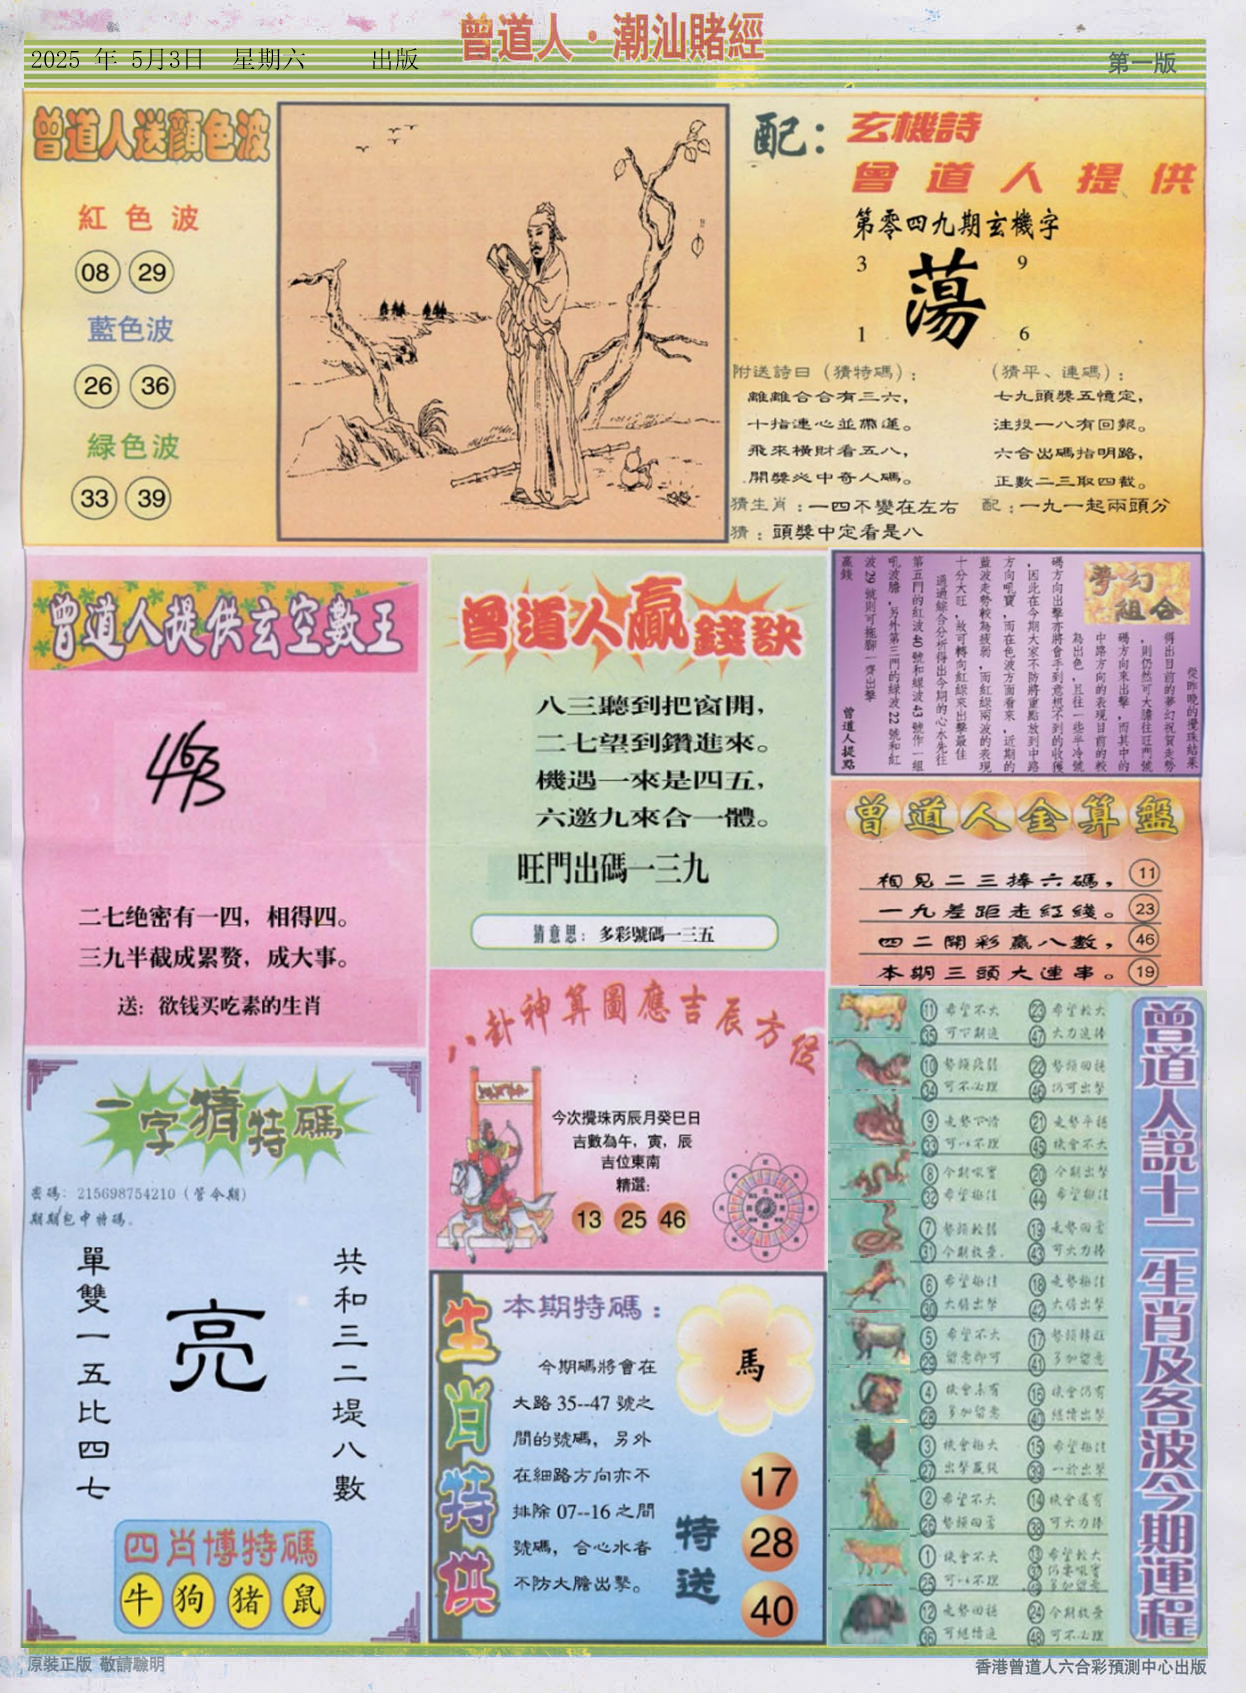 曾道人·潮汕賭經
2025 年 5月3日 星期六 出版
第一版
曾道人送顔色波
紅色波
08 29
藍色波
26 36
緑色波
33 39
配：玄機詩
曾道人提供
第零四九期玄機字
3 9
蕩
1 6
附送詩曰（猜特碼）：
離離合合有三六，
十指連心並帶蓮。
飛來橫財看五八，
開獎必中奇人碼。
（猜平、連碼）：
七九頭獎五憶定，
注投一八有回報。
六合出碼指明路，
正數二三取四截。
猜生肖：一四不變在左右
配：一九一起兩頭分
猜：頭獎中定看是八
曾道人提供玄空數王
463
二七绝密有一四，相得四。
三九半截成累赘，成大事。
送：欲钱买吃素的生肖
曾道人贏錢訣
八三聽到把窗開，
二七望到鑽進來。
機遇一來是四五，
六邀九來合一體。
旺門出碼一三九
猜意思：多彩號碼一三五
夢幻組合
從昨晚的攪珠結果
得出目前的夢幻祝賀走勢
，則仍然可大膽往旺門號
碼方向來出擊，而其中的
中路方向的表現目前的較
為出色，且往一些半冷號
碼方向出擊亦將會手到意想不到的收獲
，因此在今期大家不防將重點放到中路
方向吼寶，而在色波方面看來，近期的
藍波走勢較為疲弱，而紅緑兩波的表現
十分大旺，故可轉向紅綠來出擊最佳
通過綜合分析得出今期的心水先往
第五門的紅波40號和綠波43號作一組
吼波膽，另外第三門的綠波22號和紅
波29號則可拖腳一齊出擊
贏錢
曾道人提點
曾道人金算盤
相見二三捧六碼， 11
一九差距走紅綫。 23
四二開彩贏八數， 46
本期三頭大連串。 19
八卦神算圖應吉辰方位
今次攪珠丙辰月癸巳日
吉數為午，寅，辰
吉位東南
精選：
13 25 46
一字猜特碼
密碼：215698754210（管令期）
期期包中特碼。
單雙一五比四七
亮
共和三二堤八數
四肖博特碼
牛 狗 猪 鼠
生肖特供
本期特碼：
今期碼將會在
大路 35--47 號之
間的號碼，另外
在細路方向亦不
排除 07--16 之間
號碼，合心水者
不防大膽出擊。
馬
特送
17
28
40
曾道人説十二生肖及各波今期運程
11 希望不大 23 希望較大
35 可下期進 47 大力進捧
10 勢頭疲弱 22 勢頭回穩
34 可不必理 46 仍可出擊
9 21 走勢平穩
33 可以不理 45 機會不大
8 今期吼寶 20 今期出擊
32 希望極佳 44 希望極佳
7 勢頭較弱 19 走勢回驚
31 今期放棄. 43 可大力捧
6 希望極佳 18 走勢極佳
30 大膽出擊 42 大膽出擊
5 希望不大 17 勢頭轉旺
29 留意即可 41 多加留意
4 機會未有 16 機會仍有
28 多加留意 40 繼續出擊
3 機會極大 15 希望極佳
27 出擊贏錢 39 一於出擊
2 希望不大 14 機會還有
26 勢頭回驚 38 可大力捧
1 機會不大 13 希望較大
25 可以不理 37 仍要吼寶
49 多加留意
12 走勢回穩 24 今期放棄
36 可繼續進 48 可不必理
原裝正版 敬請聰明
香港曾道人六合彩預測中心出版